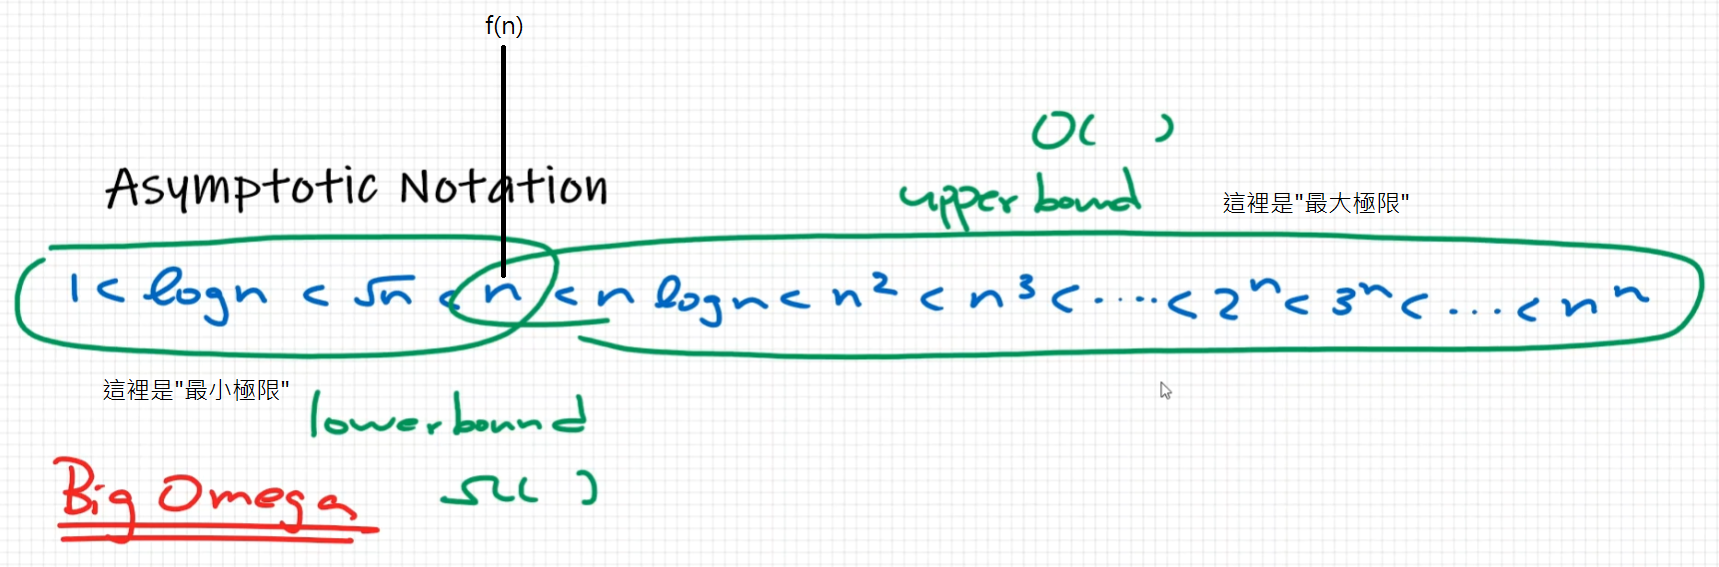 f(n)
O( )
Asymptotic Notation
upper bound 這裡是"最大極限"
1 < log n < √n < n < n log n < n² < n³ < ···· < 2ⁿ < 3ⁿ < ... < nⁿ
這裡是"最小極限"
lower bound
Big Omega Ω( )